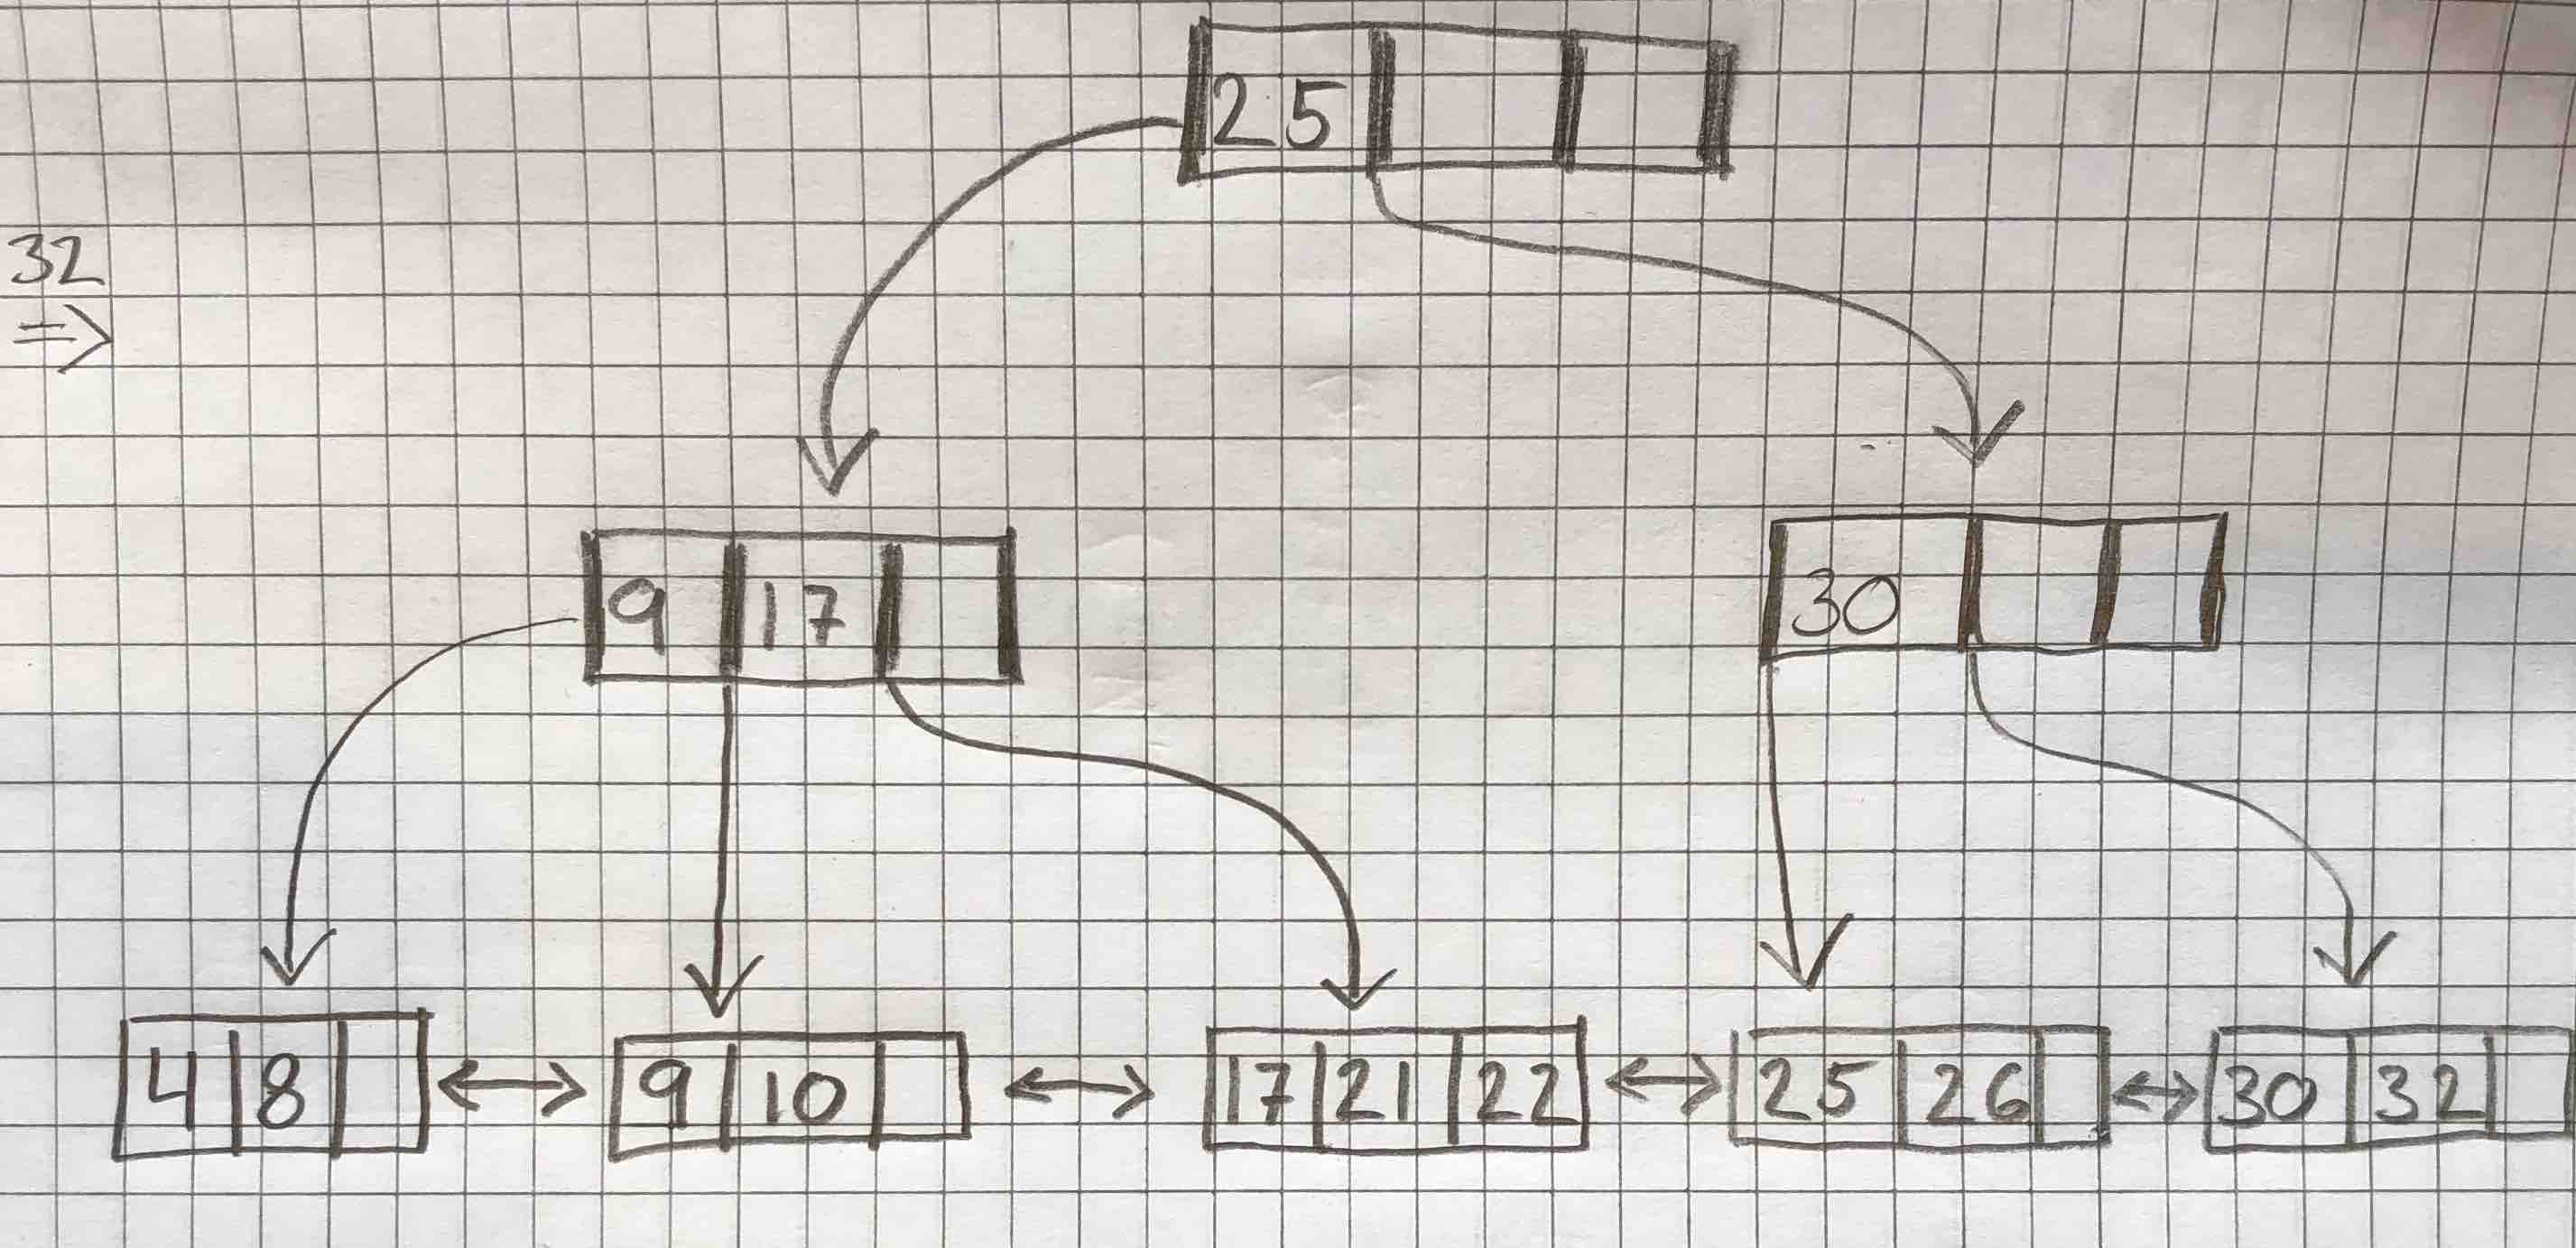 25
32
⇒
9 17
30
4 8 ↔ 9 10 ↔ 17 21 22 ↔ 25 26 ↔ 30 32